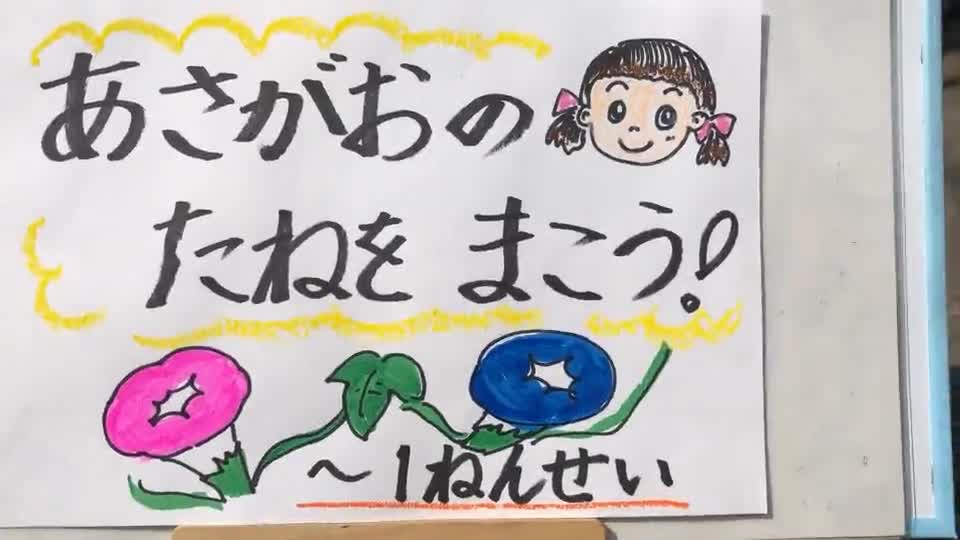 あさがおの
たねを まこう!
～1ねんせい